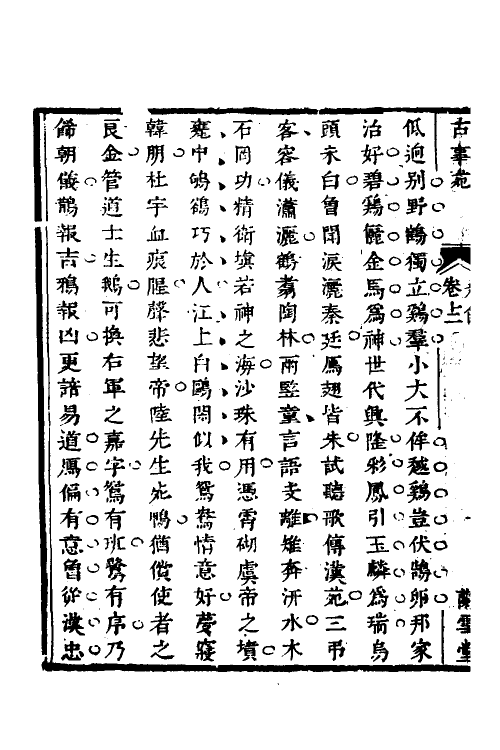 古事苑 卷上
低逈別野鶴獨立鷄羣小大不侔越鷄豈伏鵠卵邦家
治好碧鷄儷金馬爲神世代興隆彩鳳引玉麟爲瑞烏
頭未白曾聞淚灑秦廷鴈翅皆朱試聽歌傳漢苑三弔
客容儀瀟灑鶴翥陶林兩監童言語支離雉奔汧水木
石罔功精衛塡若神之海沙珠有用憑霄砌虞帝之墳
甕中鴝鵒巧於人江上白鷗閒似我鴛鴦情意好夢寢
韓朋杜宇血痕腥聲悲望帝陸先生死鴨猶償使者之
良金管道士生鵝可換右軍之嘉字鴛有班鷺有序乃
飾朝儀鵲報吉鴉報凶更諳易道鴈偏有意曾從漢忠